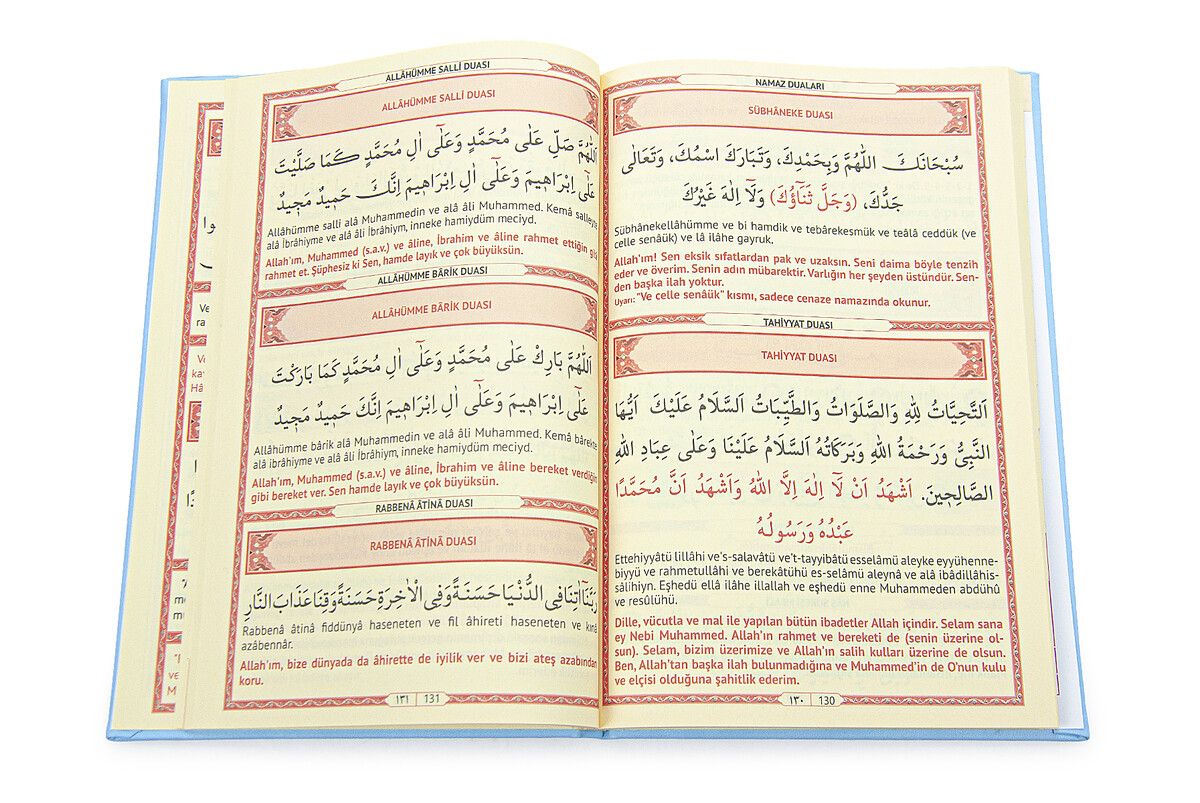 NAMAZ DUALARI
SÜBHÂNEKE DUASI
سُبْحَانَكَ اللّٰهُمَّ وَبِحَمْدِكَ، وَتَبَارَكَ اسْمُكَ، وَتَعَالٰى
جَدُّكَ، (وَجَلَّ ثَنَٓاؤُكَ) وَلَٓا اِلٰهَ غَيْرُكَ
Sübhânekellâhümme ve bi hamdik ve tebârekesmük ve teâlâ ceddük (ve
celle senâük) ve lâ ilâhe gayruk.
Allah'ım! Sen eksik sıfatlardan pak ve uzaksın. Seni daima böyle tenzih
eder ve överim. Senin adın mübarektir. Varlığın her şeyden üstündür. Sen-
den başka ilah yoktur.
Uyarı: "Ve celle senâük" kısmı, sadece cenaze namazında okunur.
TAHİYYAT DUASI
TAHİYYAT DUASI
اَلتَّحِيَّاتُ لِلّٰهِ وَالصَّلَوَاتُ وَالطَّيِّبَاتُ اَلسَّلَامُ عَلَيْكَ اَيُّهَا
النَّبِيُّ وَرَحْمَةُ اللّٰهِ وَبَرَكَاتُهُ اَلسَّلَامُ عَلَيْنَا وَعَلٰى عِبَادِ اللّٰهِ
الصَّالِحٖينَ. اَشْهَدُ اَنْ لَٓا اِلٰهَ اِلَّا اللّٰهُ وَاَشْهَدُ اَنَّ مُحَمَّدًا
عَبْدُهُ وَرَسُولُهُ
Ettehiyyâtü lillâhi ve's-salavâtü ve't-tayyibâtü esselâmü aleyke eyyühenne-
biyyü ve rahmetullâhi ve berekâtühü es-selâmü aleynâ ve alâ ibâdillâhis-
sâlihiyn. Eşhedü ellâ ilâhe illallah ve eşhedü enne Muhammeden abdühû
ve resûlühü.
Dille, vücutla ve mal ile yapılan bütün ibadetler Allah içindir. Selam sana
ey Nebi Muhammed. Allah'ın rahmet ve bereketi de (senin üzerine ol-
sun). Selam, bizim üzerimize ve Allah'ın salih kulları üzerine de olsun.
Ben, Allah'tan başka ilah bulunmadığına ve Muhammed'in de O'nun kulu
ve elçisi olduğuna şahitlik ederim.
١٣٠ 130
ALLÂHÜMME SALLİ DUASI
ALLÂHÜMME SALLİ DUASI
اَللّٰهُمَّ صَلِّ عَلٰى مُحَمَّدٍ وَعَلٰٓى اٰلِ مُحَمَّدٍ كَمَا صَلَّيْتَ
عَلٰٓى اِبْرَاهٖيمَ وَعَلٰٓى اٰلِ اِبْرَاهٖيمَ اِنَّكَ حَمٖيدٌ مَجٖيدٌ
Allâhümme salli alâ Muhammedin ve alâ âli Muhammed. Kemâ salleyte
alâ İbrâhiyme ve alâ âli İbrâhiym, inneke hamiydüm meciyd.
Allah'ım, Muhammed (s.a.v.) ve âline, İbrahim ve âline rahmet ettiğin gibi
rahmet et. Şüphesiz ki Sen, hamde layık ve çok büyüksün.
ALLÂHÜMME BÂRİK DUASI
ALLÂHÜMME BÂRİK DUASI
اَللّٰهُمَّ بَارِكْ عَلٰى مُحَمَّدٍ وَعَلٰٓى اٰلِ مُحَمَّدٍ كَمَا بَارَكْتَ
عَلٰٓى اِبْرَاهٖيمَ وَعَلٰٓى اٰلِ اِبْرَاهٖيمَ اِنَّكَ حَمٖيدٌ مَجٖيدٌ
Allâhümme bârik alâ Muhammedin ve alâ âli Muhammed. Kemâ bârekte
alâ ibrâhiyme ve alâ âli İbrâhiym, inneke hamiydüm meciyd.
Allah'ım, Muhammed (s.a.v.) ve âline, İbrahim ve âline bereket verdiğin
gibi bereket ver. Sen hamde layık ve çok büyüksün.
RABBENÂ ÂTİNÂ DUASI
RABBENÂ ÂTİNÂ DUASI
رَبَّنَٓا اٰتِنَا فِي الدُّنْيَا حَسَنَةً وَفِي الْاٰخِرَةِ حَسَنَةً وَقِنَا عَذَابَ النَّارِ
Rabbenâ âtinâ fiddünyâ haseneten ve fil âhireti haseneten ve kınâ
azâbennâr.
Allah'ım, bize dünyada da âhirette de iyilik ver ve bizi ateş azabından
koru.
١٣١ 131